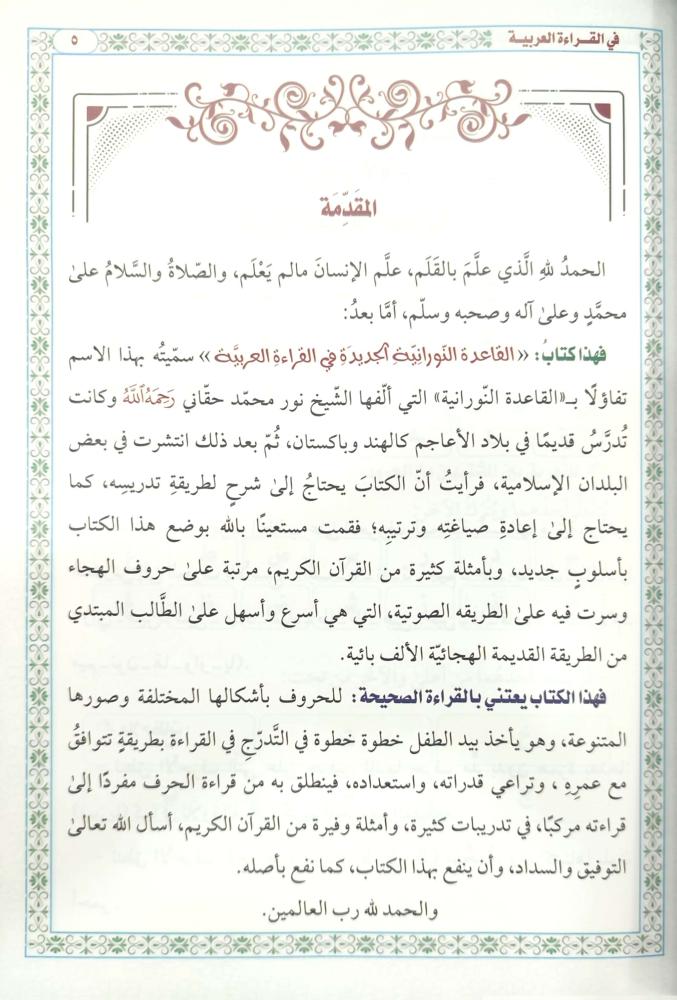 في القـراءة العربيـة
٥
المقَدِّمَة
الحمدُ للهِ الَّذي علَّمَ بالقَلَم، علَّم الإنسانَ مالم يَعْلَم، والصّلاةُ والسَّلامُ علىٰ
محمَّدٍ وعلىٰ آله وصحبه وسلّم، أمَّا بعدُ:
فهذا كتابُ: «القاعدة النّورانيّة الجديدَة في القراءةِ العربيَّة» سمّيتُه بهذا الاسم
تفاؤلًا بـ«القاعدة النّورانية» التي ألّفها الشّيخ نور محمّد حقّاني رَحِمَهُ ٱللَّهُ وكانت
تُدرَّسُ قديمًا في بلاد الأعاجم كالهند وباكستان، ثُمّ بعد ذلك انتشرت في بعض
البلدان الإسلامية، فرأيتُ أنّ الكتابَ يحتاجُ إلىٰ شرحٍ لطريقةِ تدريسِه، كما
يحتاج إلىٰ إعادةِ صياغتِه وترتيبِه؛ فقمت مستعينًا بالله بوضع هذا الكتاب
بأسلوبٍ جديد، وبأمثلة كثيرة من القرآن الكريم، مرتبة علىٰ حروف الهجاء
وسرت فيه علىٰ الطريقه الصوتية، التي هي أسرع وأسهل علىٰ الطَّالب المبتدي
من الطريقة القديمة الهجائيّة الألف بائية.
فهذا الكتاب يعتني بالقراءة الصحيحة: للحروف بأشكالها المختلفة وصورها
المتنوعة، وهو يأخذ بيد الطفل خطوة خطوة في التَّدرّجِ في القراءة بطريقةٍ تتوافقُ
مع عمرِهِ، وتراعي قدراته، واستعداده، فينطلق به من قراءة الحرف مفردًا إلىٰ
قراءته مركبًا، في تدريبات كثيرة، وأمثلة وفيرة من القرآن الكريم، أسأل الله تعالىٰ
التوفيق والسداد، وأن ينفع بهذا الكتاب، كما نفع بأصله.
والحمد لله رب العالمين.